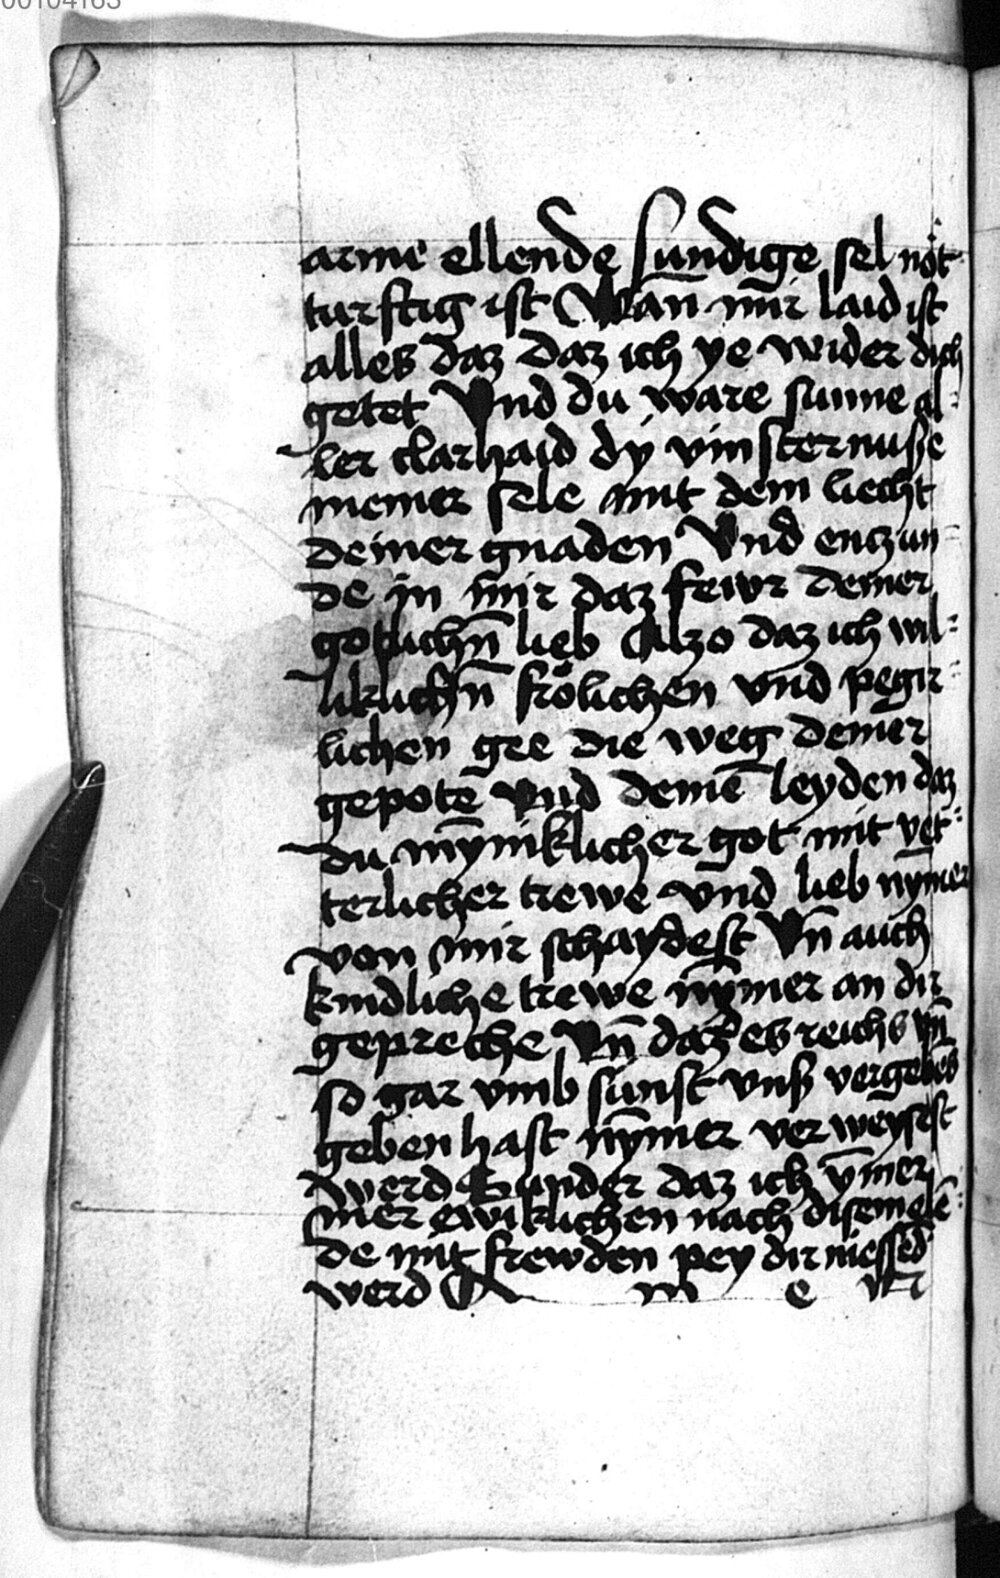 00104163
arme ellende sundige sel not
turftig ist Wan mir laid ist
alles daz daz ich ye wider dich
getet Vnd du ware sunne al-
ler clarhaid dy vinsternusse
meiner sele mit dem liecht
deiner gnaden Vnd enczun-
de in mir daz fewr deiner
gotlichn̄ lieb Alzo daz ich wil-
liklichn̄ frölichen vnd pegir-
lichen gee die weg deiner
gepote vnd deinē leyden daz
du mȳniklicher got mit vet-
terlicher trewe vnd lieb nȳmer
von mir schaydest Vn̄ auch
kindliche trewe nȳmer an dir
gepreche Vn̄ daz es reichs
so gar vmb sunst vnß vergebēs
geben hast nȳmer verweysest
werd Sunder daz ich ȳmer
mer ewiklichen nach disem elē-
de mit frewden pey dir niessed
werd A m e n